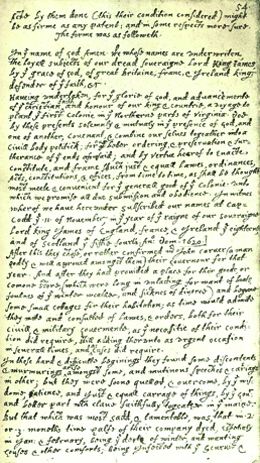 54
by them done (this their condition considered) might
be as firme as any patent; and in some respects more sure.
The forme was as followeth.
In yͤ name of god Amen. we whose names are underwriten,
the loyall subjects of our dread soveraigne Lord King James
by yͤ grace of god, of great Britaine, franc, & Ireland king,
defender of yͤ faith, &c.
Haveing undertaken, for yͤ glorie of god, and advancemente
of yͤ christian and honour of our king & countrie, a voyage to
plant yͤ first colonie in yͤ Northerne parts of Virginia. Doe
by these presents solemnly & mutualy in yͤ presence of god, and
one of another, covenant, & combine our selves togeather into a
Civill body politick; for our better ordering, & preservation & fur-
therance of yͤ ends aforesaid; and by vertue hearof to enacte,
constitute, and frame such just & equall Lawes, ordinances,
Acts, constitutions, & offices, from time to time, as shall be thought
most meete & convenient for yͤ generall good of yͤ Colonie: unto
which we promise all due submission and obedience. In witnes
wherof we have hereunder subscribed our names at Cap-
Codd yͤ 11 of November, in yͤ year of yͤ raigne of our soveraigne
Lord king James of England, franc, & Ireland yͤ eighteenth
and of Scotland yͤ fiftie fourth. Ano Dom. 1620.
After this they chose, or rather confirmed mr John Carver (a man
godly & well approved amongst them) their Governour for that
year. And after they had provided a place for their goods, or
comone store, (which were long in unlading for want of boats,
foulnes of yͤ winter weather, and sicknes of diverce) and begune
some small cottages for their habitation; as time would admitte
they mette and consulted of lawes, & orders, both for their
civill & military govermente, as yͤ necessitie of their condi-
tion did require, still adding therunto as urgent occasion
in severall times, and cases did require.
In these hard & difficulte beginings they found some discontents
& murmurings amongst some, and mutinous speeches & carriage
in other; but they were soone quelled, & overcome, by yͤ wis-
dome, patience, and just & equall carrage of things, by yͤ Govr
and better part which clave faithfully togeather in yͤ maine.
But that which was most sadd, & lamentable, was, that in 2.
or 3. moneths time halfe of their company dyed, espetialy
in Jan: & february, being yͤ depth of winter, and wanting
houses & other comforts; being infected with yͤ scurvie &